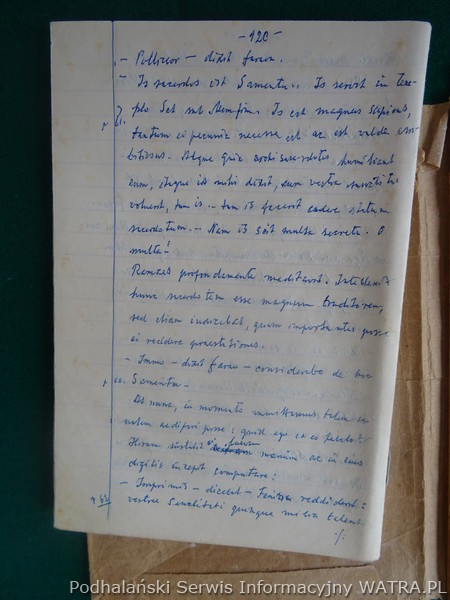 - 120 -
- Polliceor - dixit farao.
- Is sacerdos est Samentu. Is servit in tem-
plo Set sub Memfim. Is est magnus sapiens,
tantum ei pecunia necesse est ac est valde
Atque quia sacerdotes humiliant
eum, itaque is mihi dixit, cum vestra sanctitas
voluerit, tum is - tum is faceret cadere statum
sacerdotum. - Nam is scit multa secreta. O
multa!
Ramzes profondamente meditavit. Intellexit
hunc sacerdotem esse magnum traditorem,
sed etiam quam importantes posse
ei reddere
- Immo - dixit farao - considerabo de hoc
Samentu -
At nunc, in momento
aedificari posse: quid ego ex eo
Hiram manum ac in eius
digitis incepit computare:
- Imprimis - dicebat - Fenitia reddiderit
vestrae Sanctitati quinque milia talent
·/·
62
Podhalański Serwis Informacyjny WATRA.PL